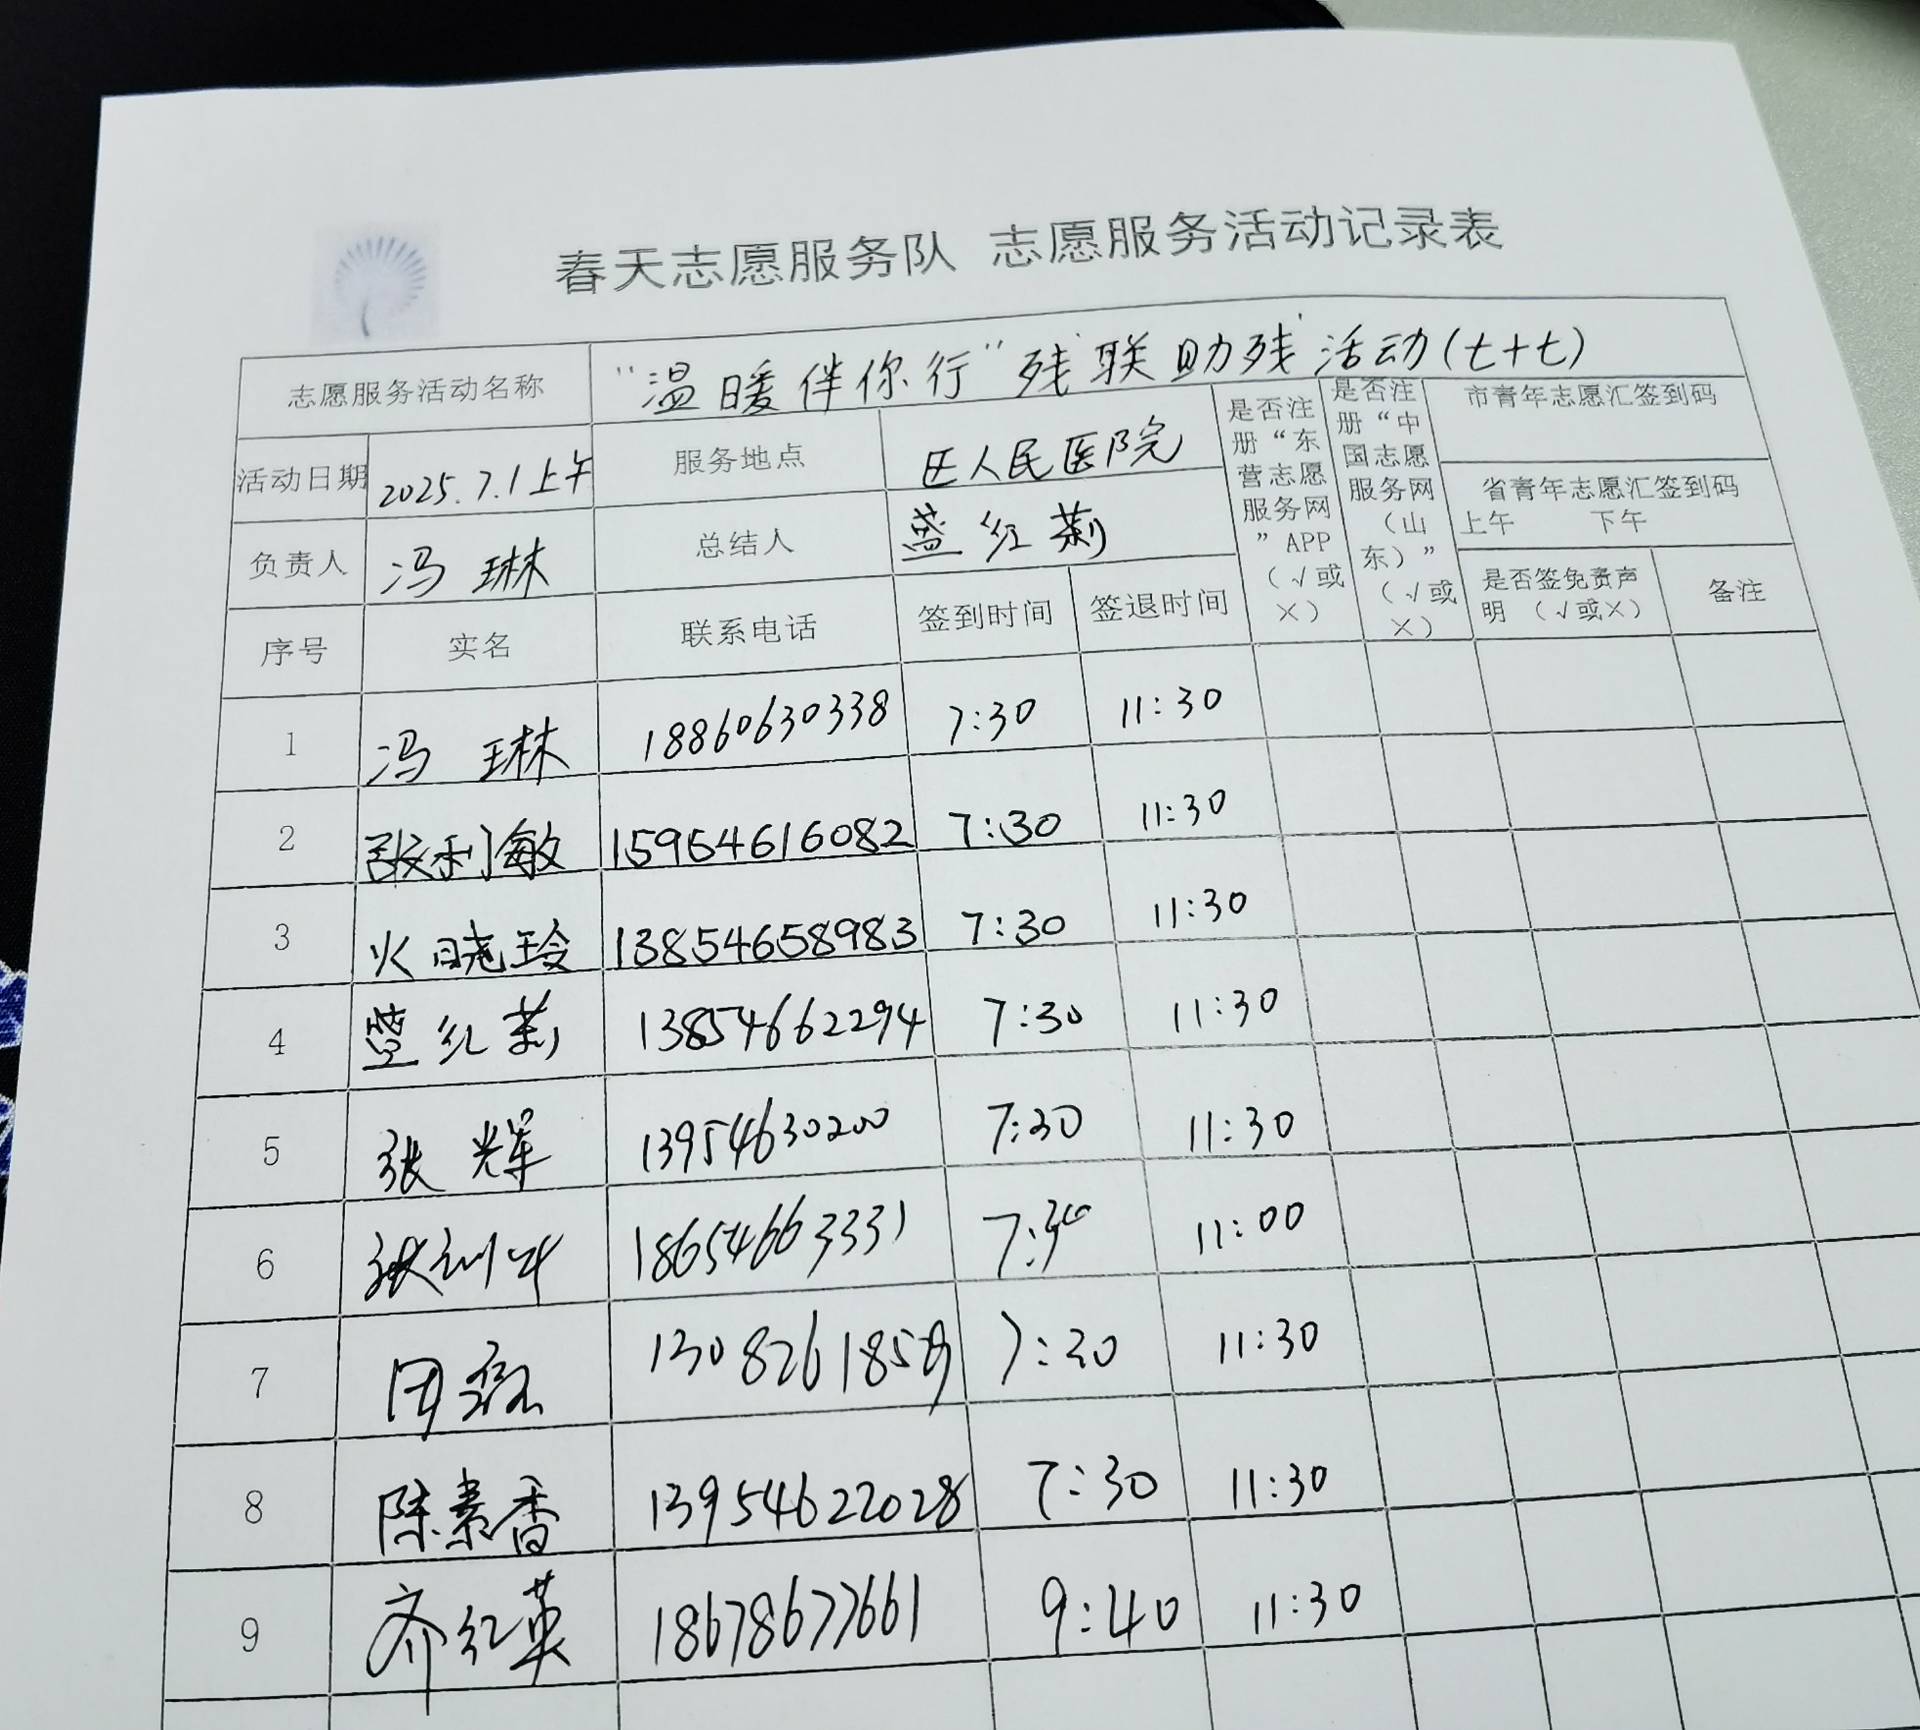 春天志愿服务队 志愿服务活动记录表
志愿服务活动名称 “温暖伴你行”残联助残活动(七+七)
活动日期 2025.7.1上午 服务地点 区人民医院
负责人 冯琳 总结人 红莉
是否注册“东营志愿服务网”APP（√或×）
是否注册“中国志愿服务网（山东）”（√或×）
市青年志愿汇签到码
省青年志愿汇签到码
上午 下午
序号 实名 联系电话 签到时间 签退时间 是否签免责声明（√或×） 备注
1 冯琳 18860630338 7:30 11:30
2 张利敏 15964616082 7:30 11:30
3 火晓玲 13854658983 7:30 11:30
4 红莉 13854662294 7:30 11:30
5 张辉 13954630200 7:30 11:30
6 张 18654663331 7:30 11:00
7 1308261859 7:30 11:30
8 陈素香 13954622028 7:30 11:30
9 齐红英 18678677661 9:40 11:30